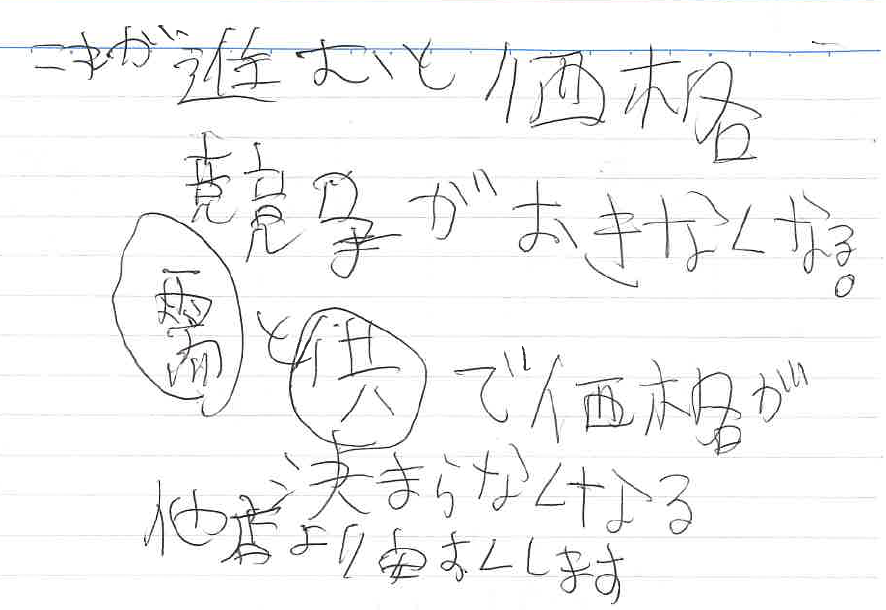 これが進むと価格
競争がおきなくなる。
需と供で価格が
決まらなくなる
他店より安くします